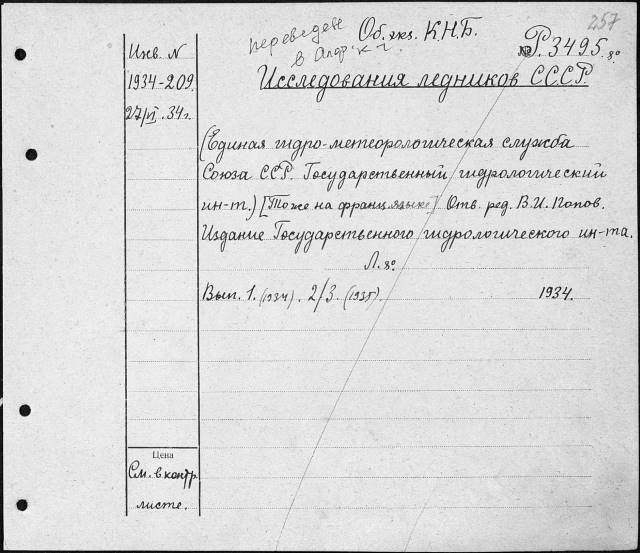 257
переведен в Алф. к-г.
Об. экз. К.Н.Б.
№ Р.3495. 8º
Инв. N
1934-209.
27/VI.34г.
Исследования ледников СССР.
(Единая гидро-метеорологическая служба
Союза ССР. Государственный гидрологический
ин-т.) [Тоже на франц. языке] Отв. ред. В.И. Попов.
Издание Государственного гидрологического ин-та.
Л. 8º.
Вып. 1. (1934). 2/3. (1935). 1934.
Цена
См. в контр.
листе.